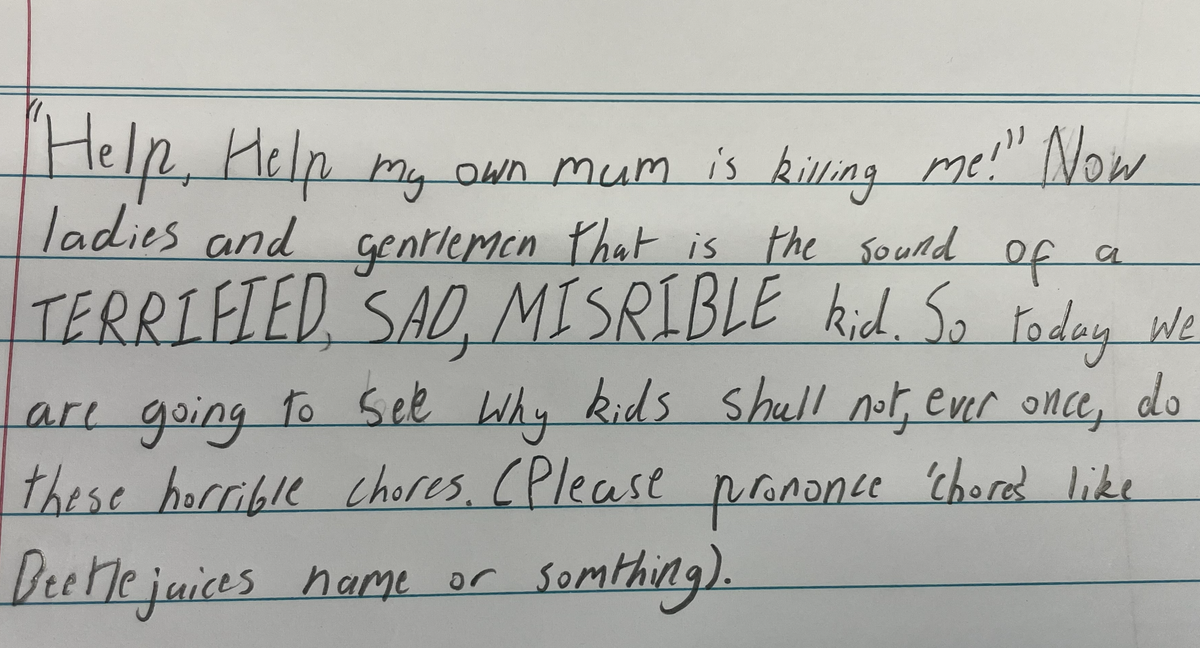 "Help, Help my own mum is killing me!" Now
ladies and gentlemen that is the sound of a
TERRIFIED, SAD, MISRIBLE kid. So today we
are going to see why kids shall not, ever once, do
these horrible chores. (Please prononce 'chores' like
Beetlejuices name or somthing).